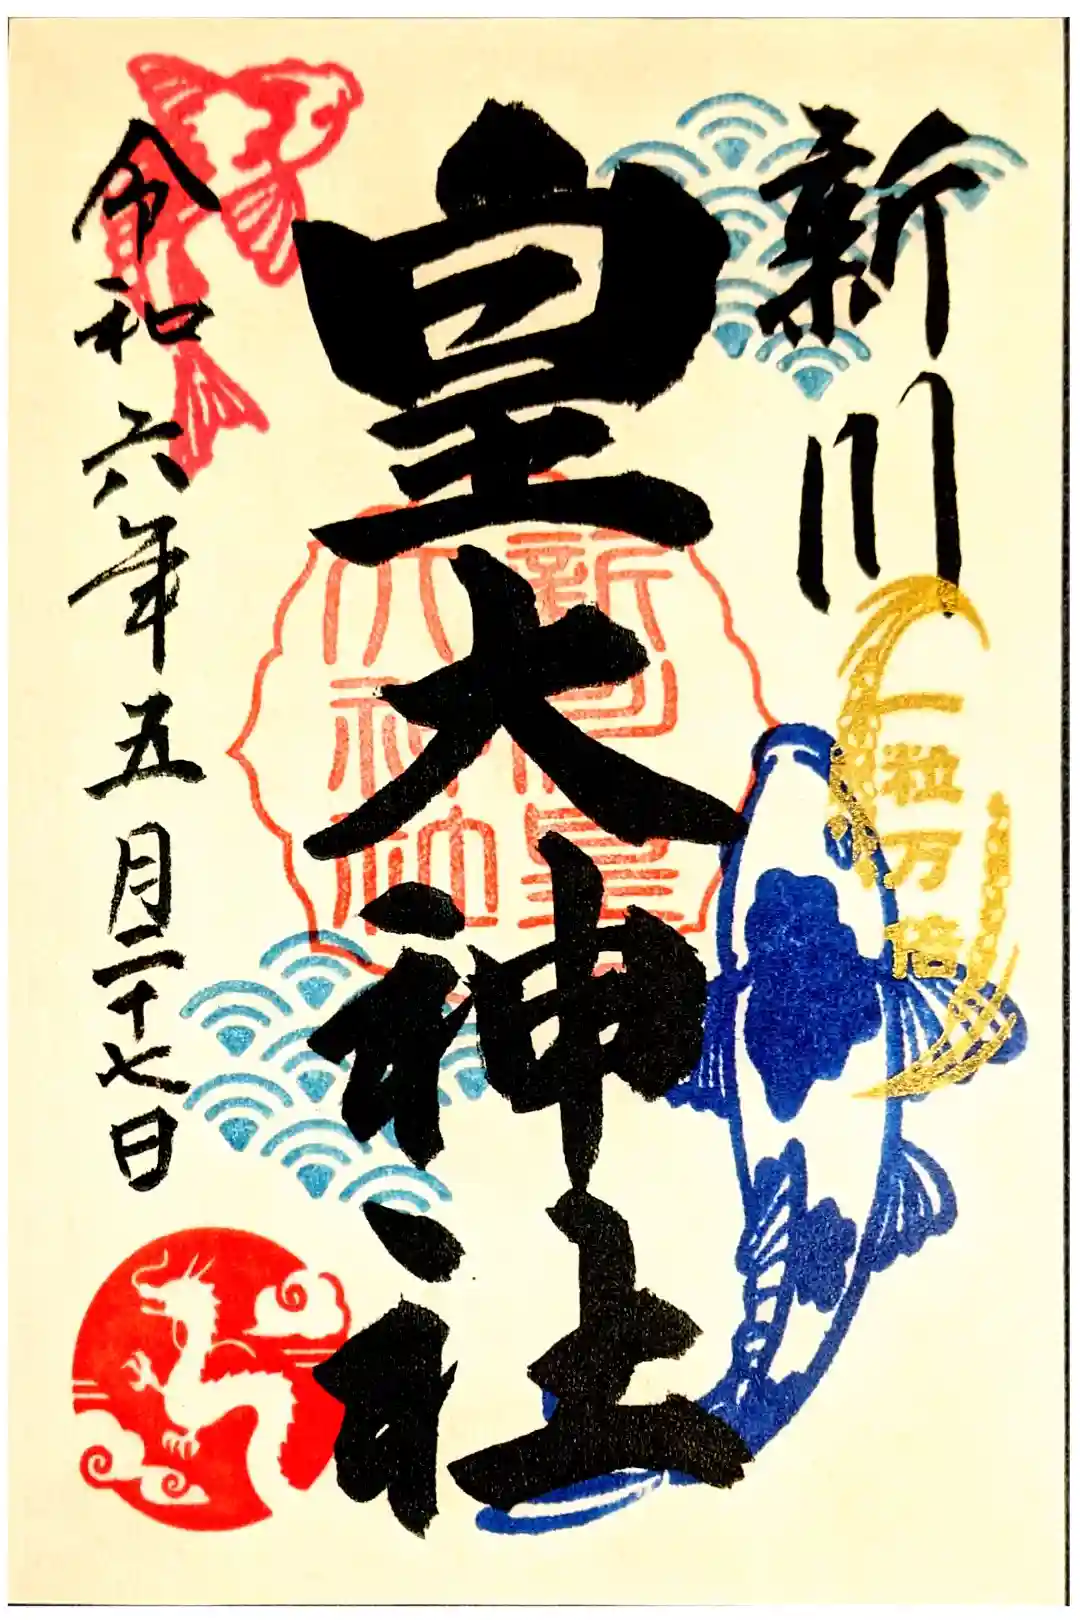 新川
一粒万倍
皇大神社
新川皇
大神社
令和六年五月二十七日